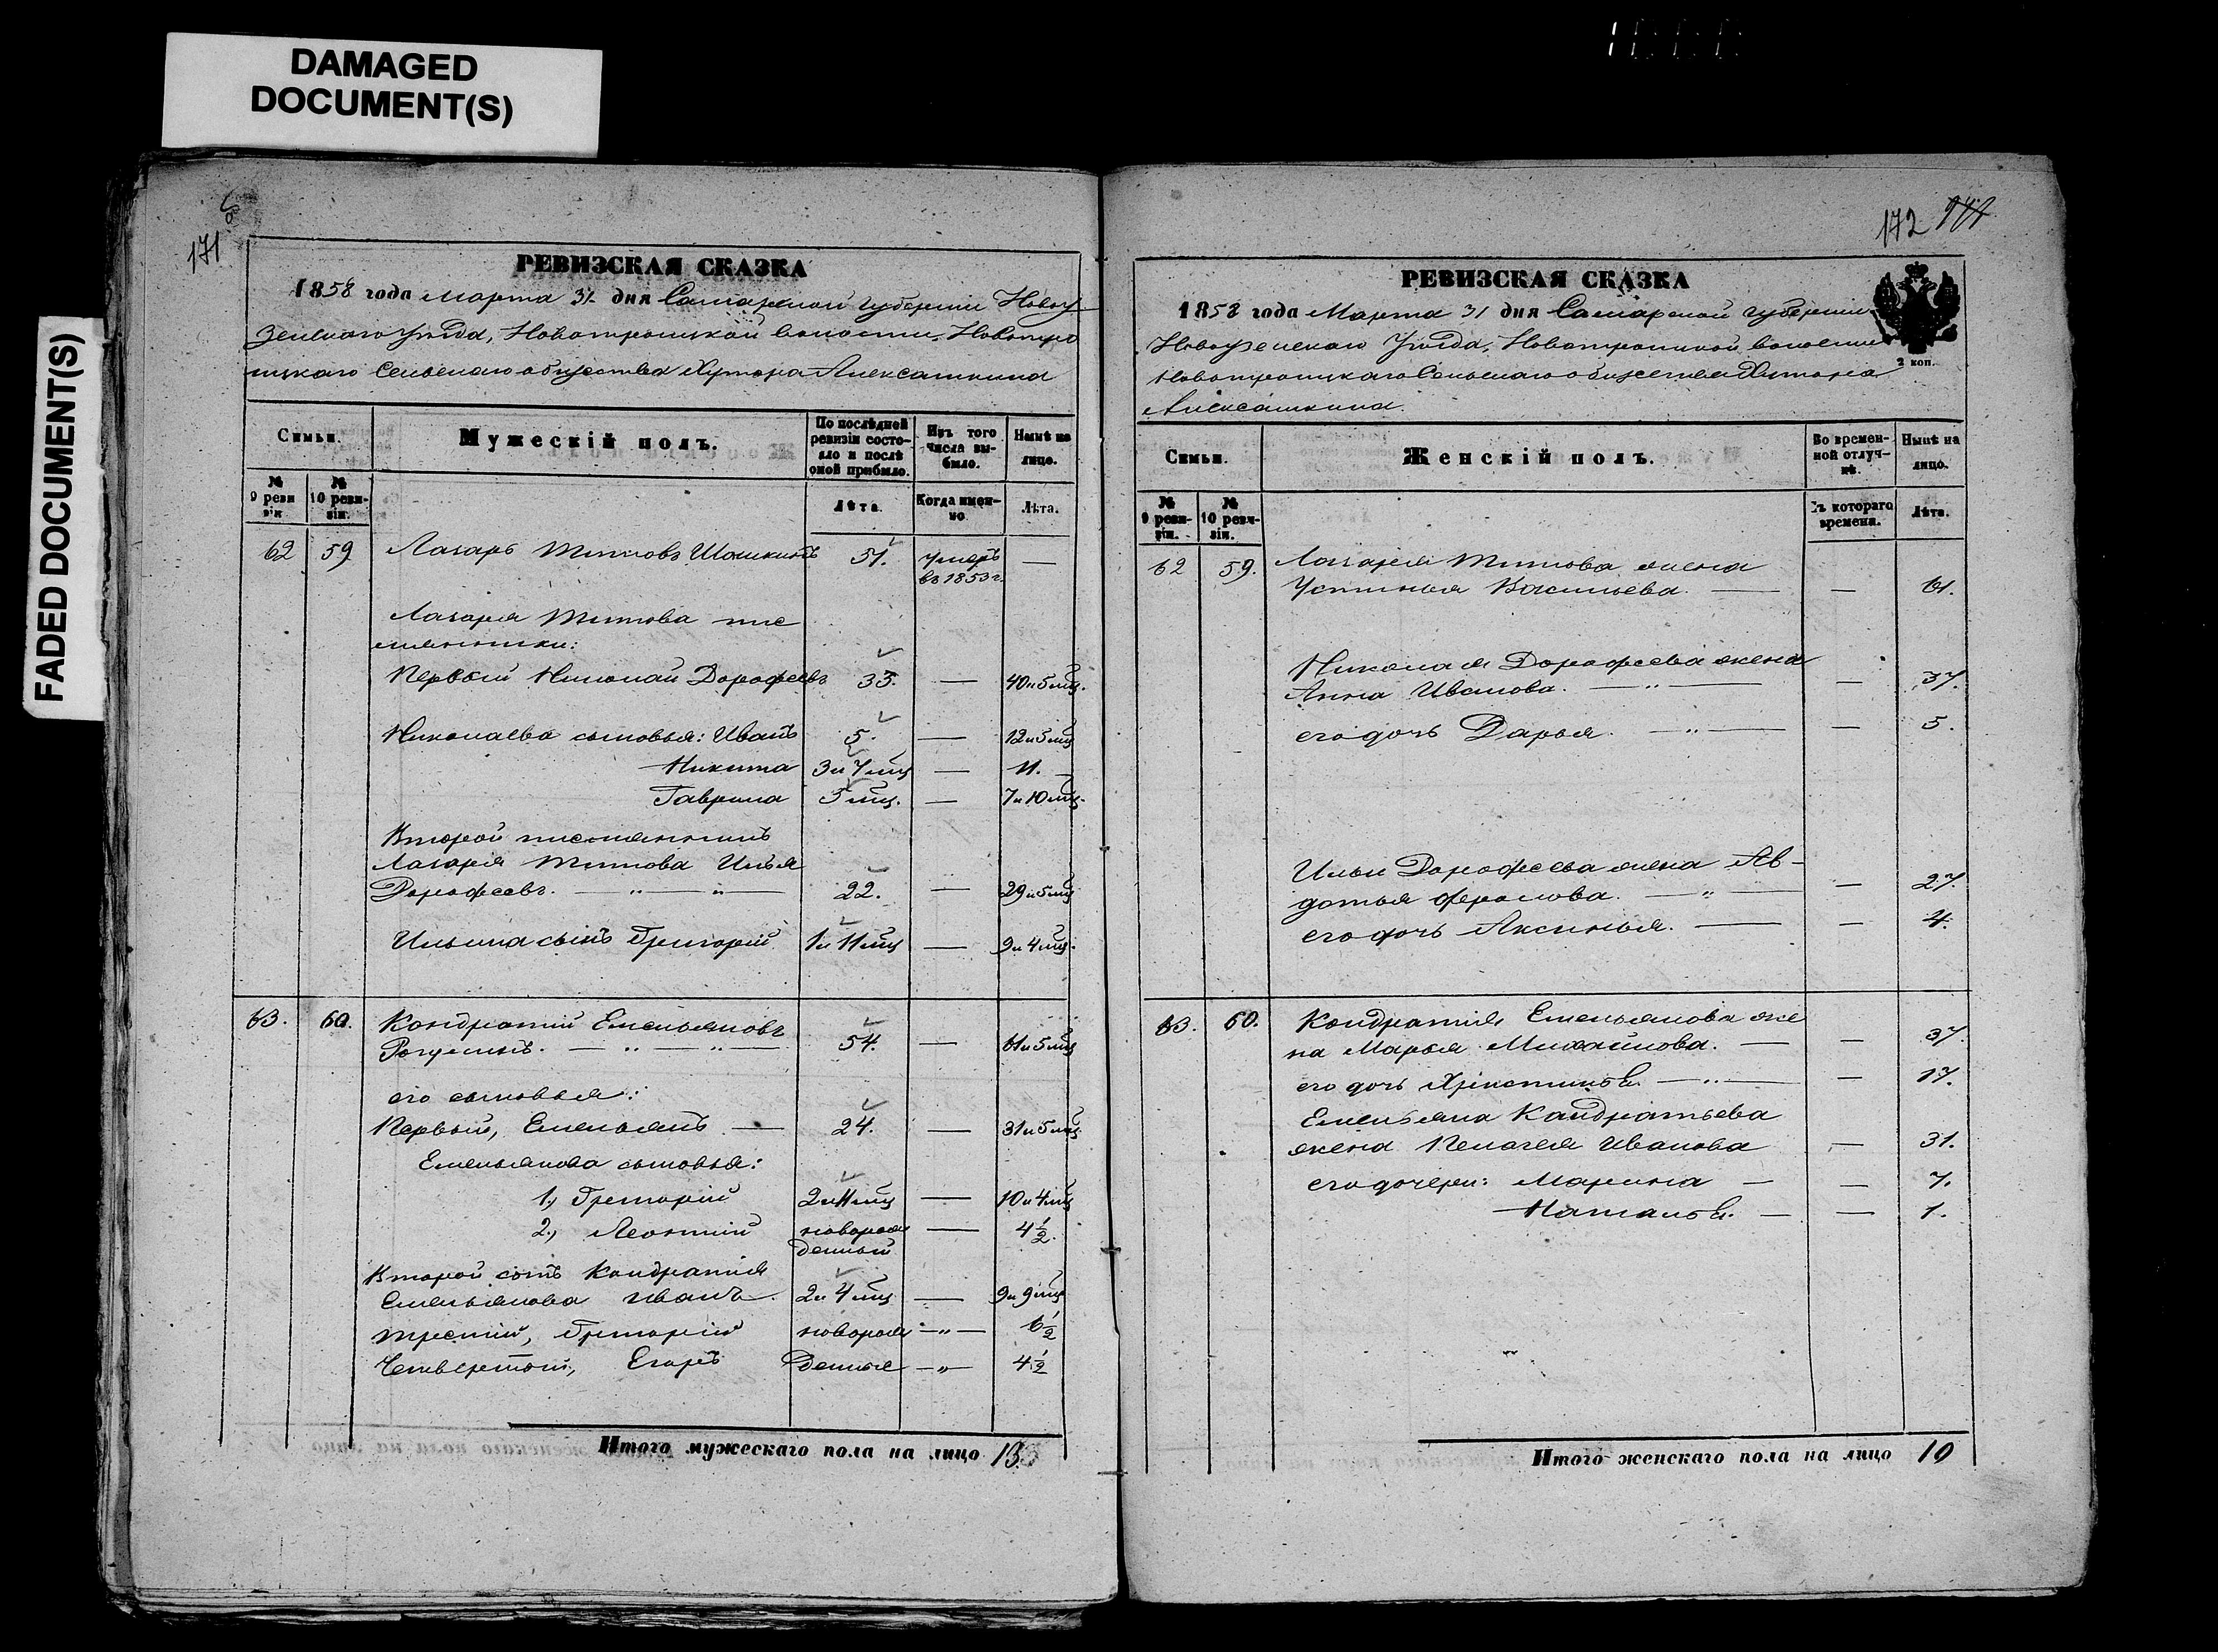 DAMAGED
DOCUMENT(S)
FADED DOCUMENT(S)
171
РЕВИЗСКАЯ СКАЗКА
1858 года Марта 31 дня Самарской губернiи Новоу
зенскаго Уѣзда, Новотроицкой волости, Новотро
ицкаго Сельскаго общества Хутора Алексашкина
Семьи.
Мужескiй полъ.
По послѣдней ревизiи состояло и послѣ оной прибыло.
Изъ того числа выбыло.
Нынѣ на лицо.
№ 9 реви зiи
№ 10 реви- зiи.
Лѣта.
Когда имен- но
Лѣта.
62 59 Лазарь Титовъ 51. умеръ —
въ 1853 г.
Лазаря Титова пле
мянники:
Первый Николай Дорофеевъ 33. — 40 и 5 мц.
Николаева сыновья: Иванъ 5. — 12 и 5 мц
Никита 3 и 7 мц — 11. —
Гаврила 5 мц. — 7 и 10 мц.
Второй племянникъ
Лазаря Титова Илья
Дорофеевъ. — „ — „ 22. — 29 и 5 мц
Ильина сынъ Григорiй 1 и 11 мц — 9 и 4 мц.
63. 60. Кондратiй Емельяновъ
— „ — „ — 54. — 61 и 5 мц
его сыновья:
Первый, Емельянъ — 24. — 31 и 5 мц
Емельянова сыновья:
1, Григорiй 2 и 11 мц — 10 и 4 мц
2, Леонтiй новорож — 4 1/2.
денный
Второй сынъ Кондратiя
Емельянова Иванъ. 2 и 4 мц — 9 и 9 мц
третiй, Григорiй новорож — „ — 6 1/2
Четвертый, Егоръ денные — „ — 4 1/2
Итого мужескаго пола на лицо 13
172
РЕВИЗСКАЯ СКАЗКА
1858 года Марта 31 дня Самарской губернiи
Новоузенскаго Уѣзда, Новотроицкой волости
Новотроицкаго Сельскаго общества Хутора
Алексашкина.
2 коп.
Семьи.
Женскiй полъ.
Во времен- ной отлуч- кѣ.
Нынѣ на лицо.
№ 9 реви- зiи.
№ 10 реви- зiи.
Съ котораго времени.
Лѣта.
62 59. Лазаря Титова жена
Устинья Васильева. — — 61.
Николая Дорофеева жена
Анна Иванова. — „ — — 37.
его дочь Дарья. — „ — — 5.
Ильи Дорофеева жена Ав-
дотья Фролова. — „ — — 27.
его дочь Аксинья. — — 4.
63. 60. Кондратiя Емельянова же
на Марья Михайлова. — — 37.
его дочь Христинья. — „ — — 17.
Емельяна Кандратьева
жена Пелагея Иванова — 31.
его дочери: Марина — — 7.
Наталья. — — 1.
Итого женскаго пола на лицо 10